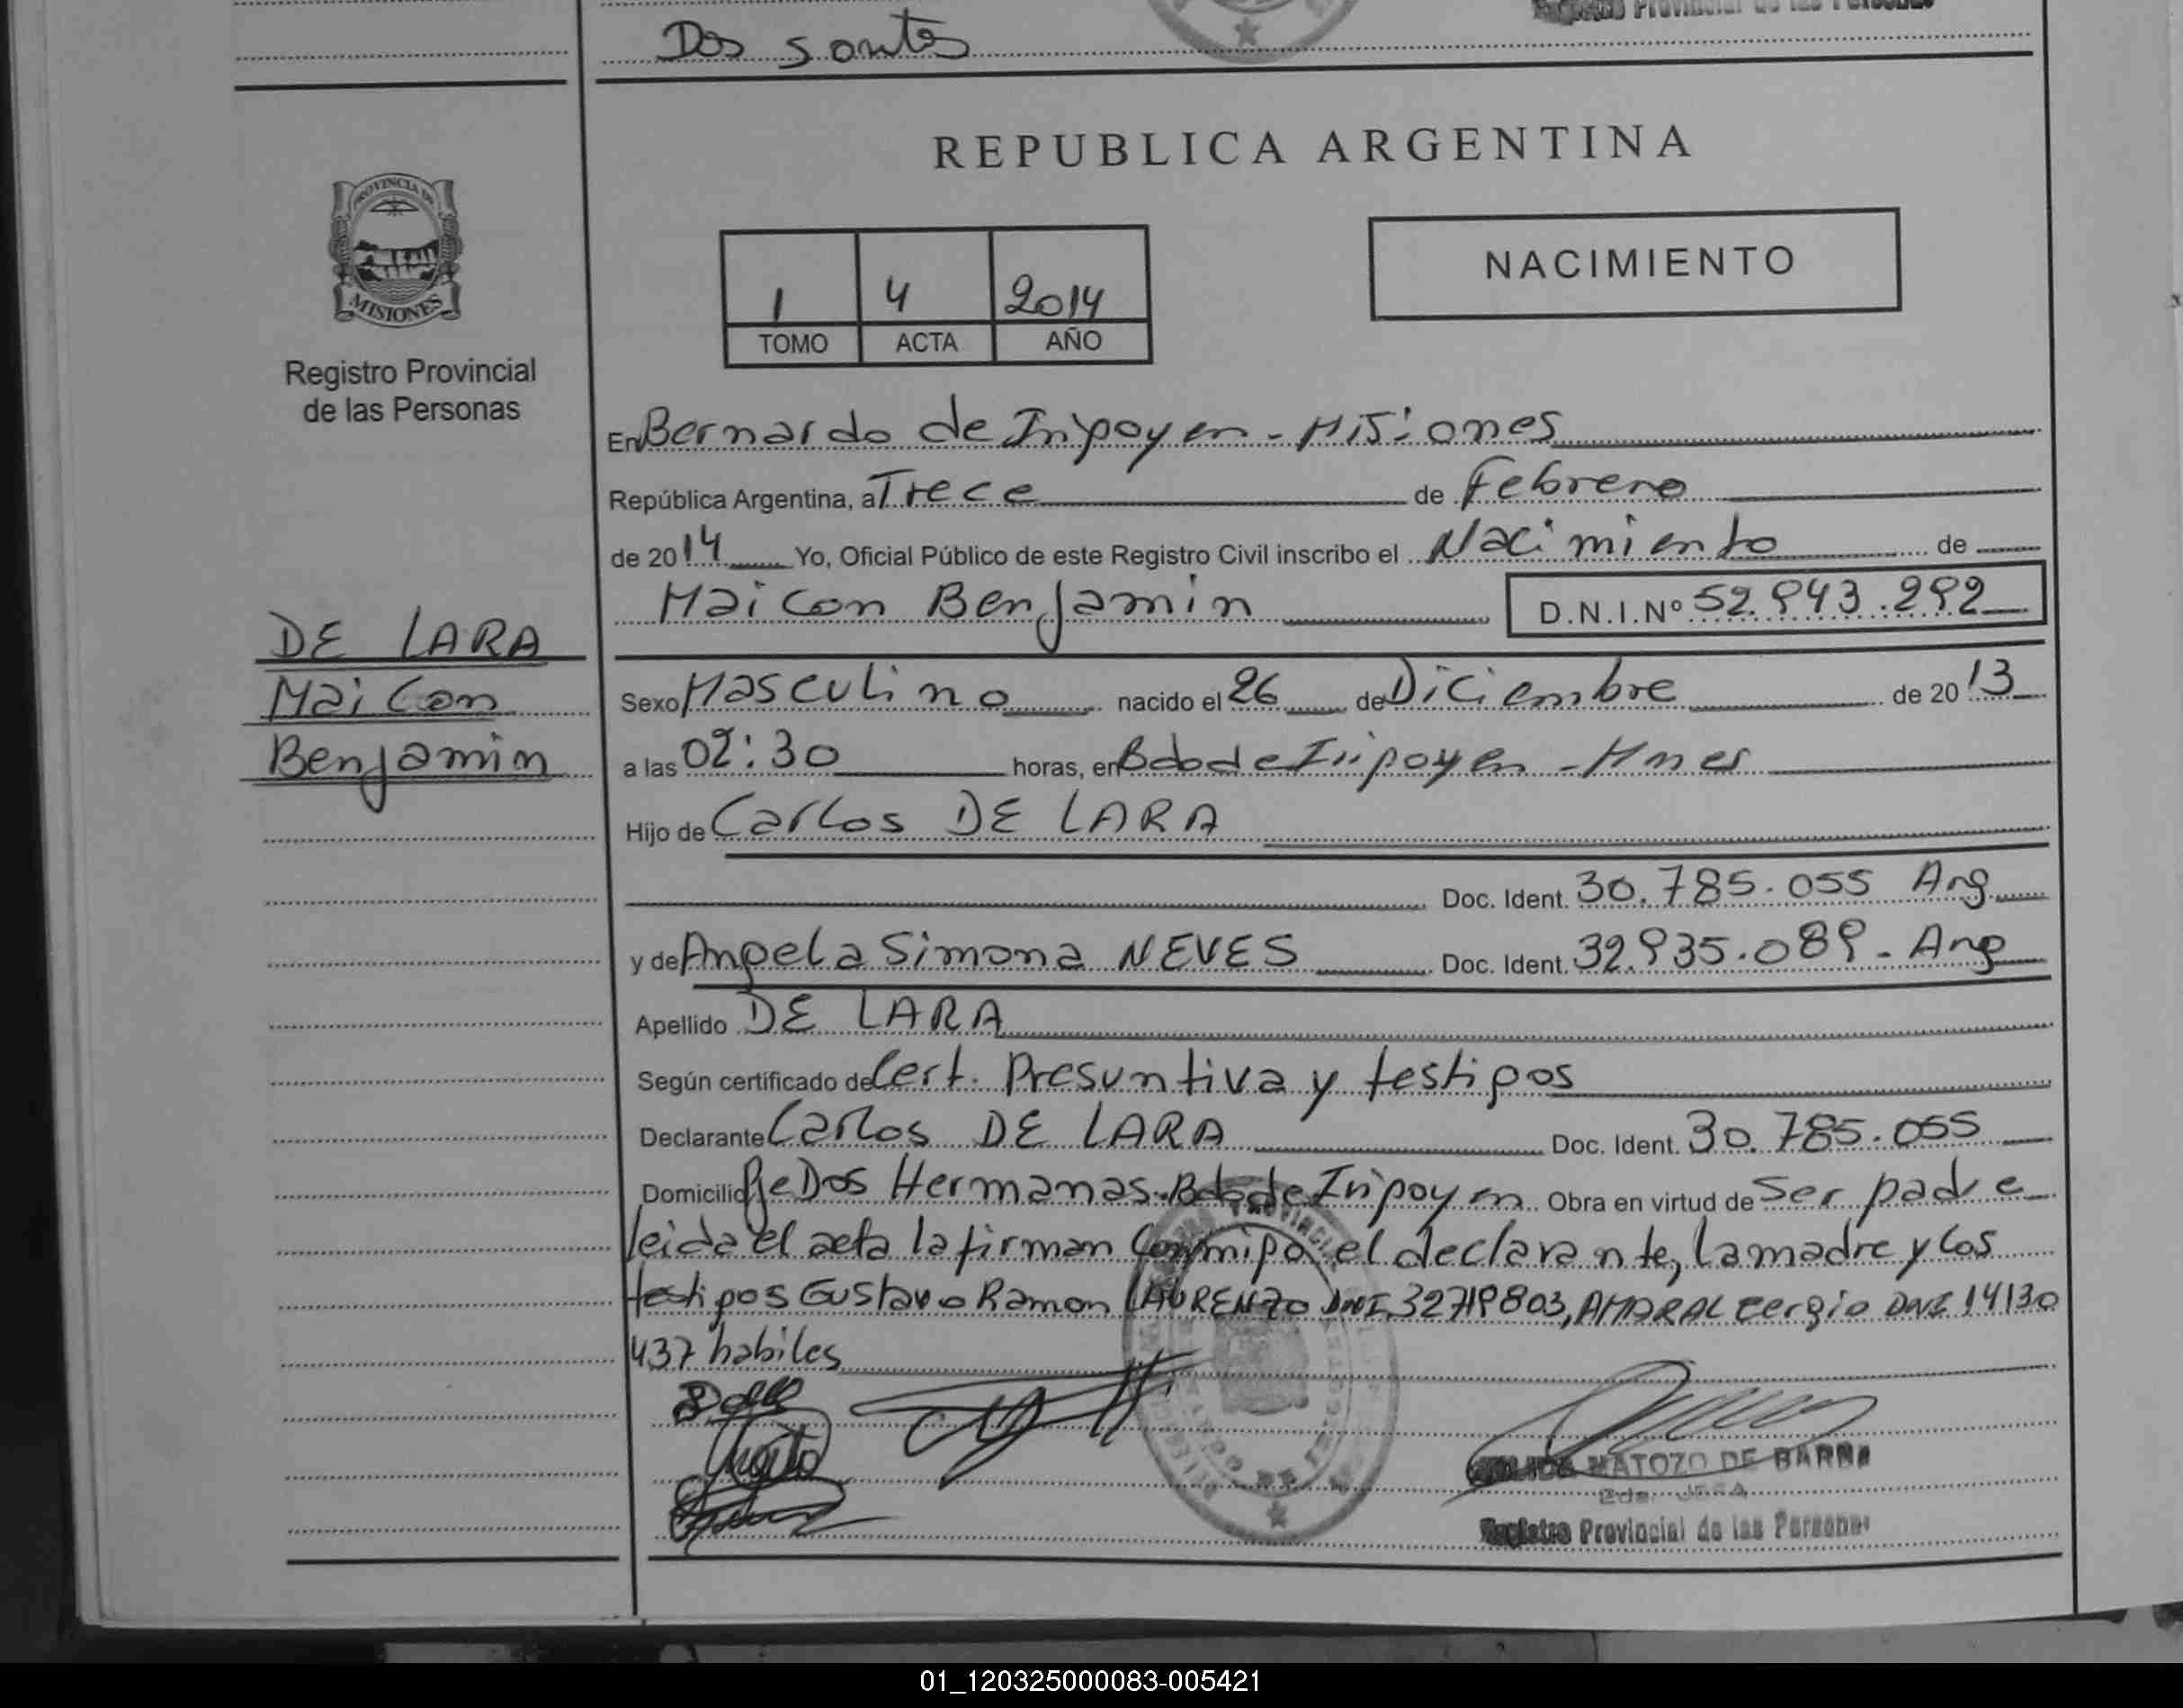 Dos santos
REPUBLICA ARGENTINA
PROVINCIA DE
MISIONES
Registro Provincial
de las Personas
1 4 2014
TOMO ACTA AÑO
NACIMIENTO
En Bernardo de Irigoyen - Misiones
República Argentina, a Trece de Febrero
de 2014 Yo, Oficial Público de este Registro Civil inscribo el Nacimiento de
Maicon Benjamin D.N.I.Nº 52.943.292
DE LARA
Maicon
Benjamin
Sexo Masculino nacido el 26 de Diciembre de 2013
a las 02:30 horas, en Bdo de Irigoyen - Mnes
Hijo de Carlos DE LARA
Doc. Ident. 30.785.055 Arg
y de Angela Simona NEVES Doc. Ident. 32.935.089 - Arg
Apellido DE LARA
Según certificado de Cert. Presuntiva y testigos
Declarante Carlos DE LARA Doc. Ident. 30.785.055
Domicilio Pje Dos Hermanas - Bdo de Irigoyen Obra en virtud de Ser padre
leida el acta la firman Conmigo el declarante, la madre y los
testigos Gustavo Ramon LAURENZO DNI 32719803, AMARAL Sergio DNI 14130
437 habiles
MATOZO DE BARNA
JEFA
Registro Provincial de las Personas
01_120325000083-005421